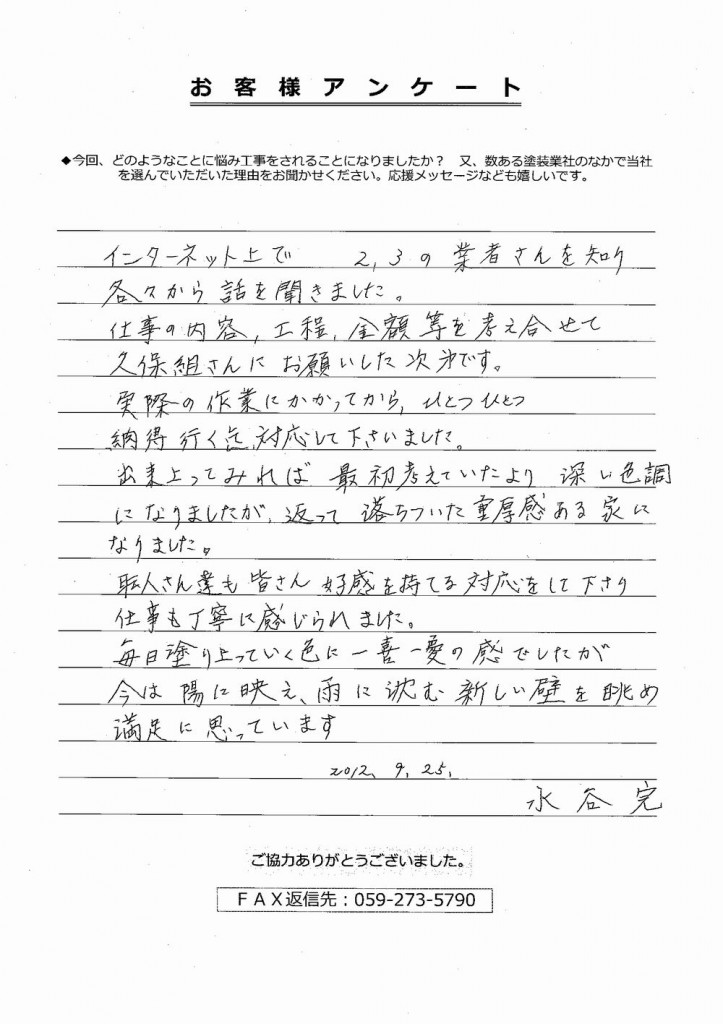 お客様アンケート
◆今回、どのようなことに悩み工事をされることになりましたか？　又、数ある塗装業社のなかで当社
を選んでいただいた理由をお聞かせください。応援メッセージなども嬉しいです。
インターネット上で　2,3の業者さんを知り
各々から話を聞きました。
仕事の内容,工程,金額等を考え合せて
久保組さんにお願いした次第です。
実際の作業にかかってから,ひとつひとつ
納得行く迄対応して下さいました。
出来上ってみれば 最初考えていたより 深い色調
になりましたが、返って 落ちついた重厚感ある家に
なりました。
職人さん達も皆さん 好感を持てる対応をして下さり
仕事も丁寧に感じられました。
毎日塗り上っていく色に一喜一憂の感でしたが
今は陽に映え、雨に沈む新しい壁を眺め
満足に思っています
2012. 9. 25.
水谷完
ご協力ありがとうございました。
ＦＡＸ返信先：059-273-5790